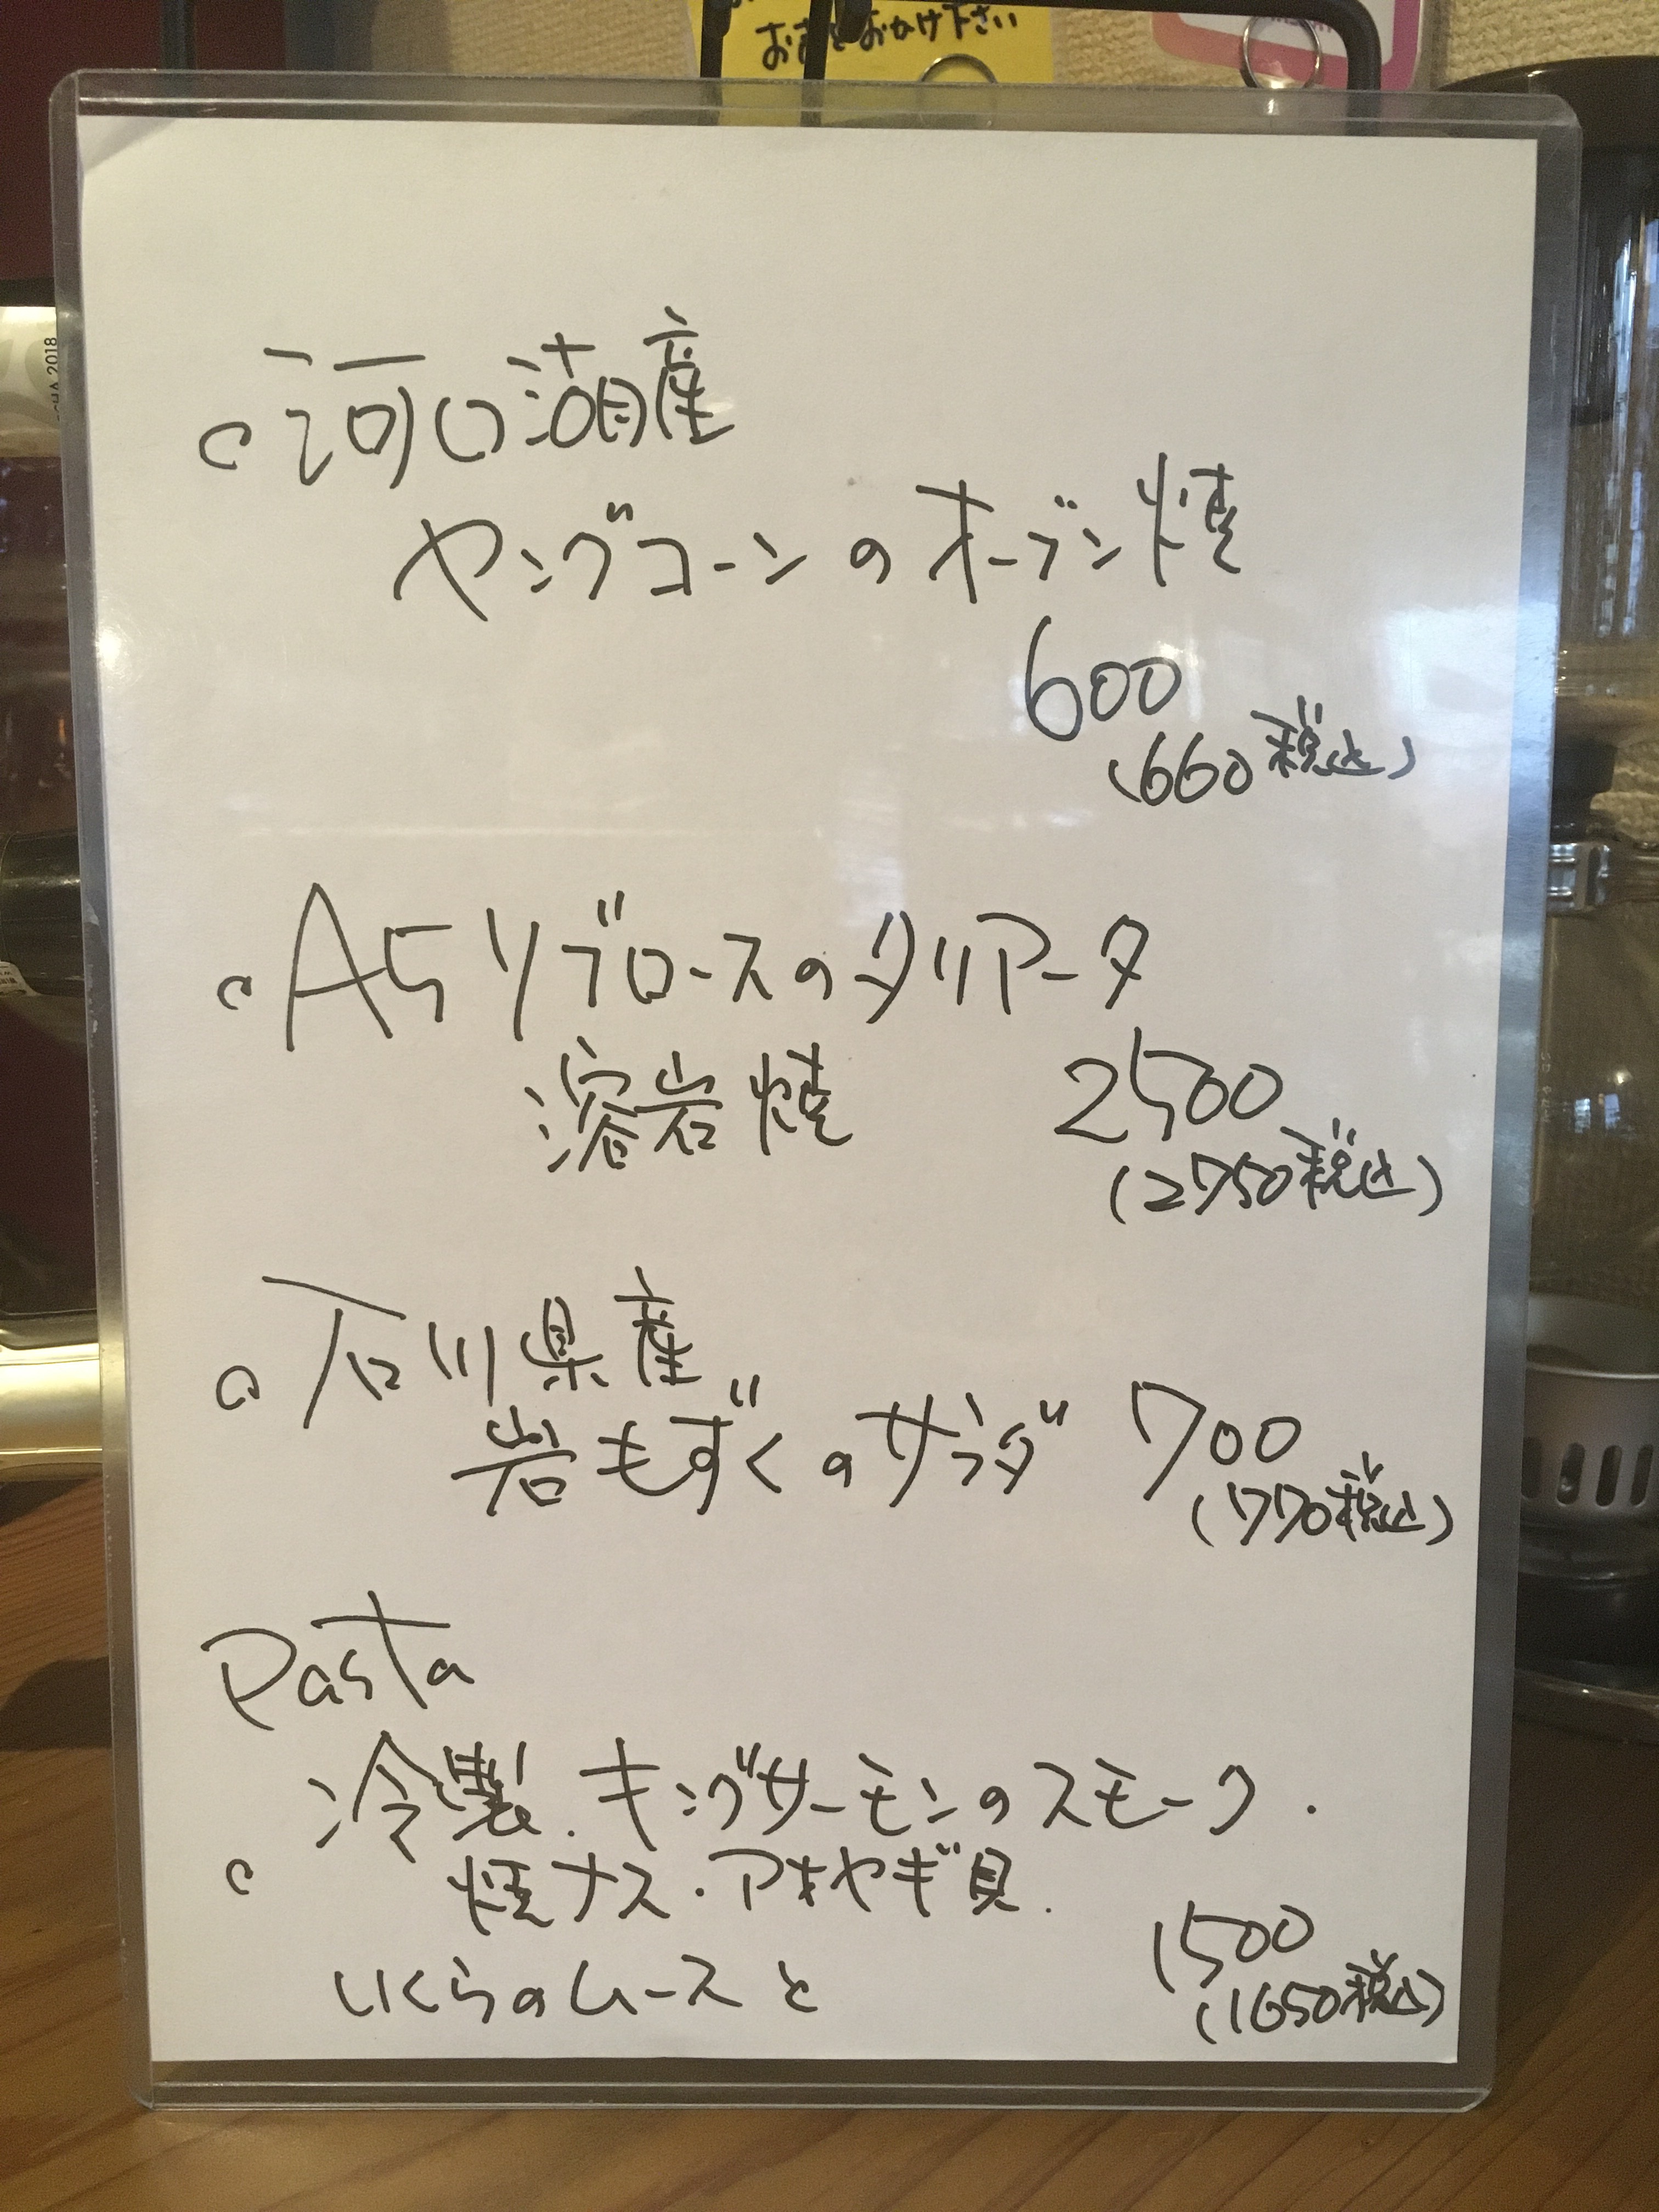 お声をおかけ下さい
CHA 2018
○河口湖産
ヤングコーンのオーブン焼
600
(660税込)
○A5リブロースのタリアータ
溶岩焼 2500
(2750税込)
○石川県産
岩もずくのサラダ 700
(770税込)
Pasta
冷製.キングサーモンのスモーク.
○ 焼ナス.アオヤギ貝.
いくらのムースと 1500
(1650税込)